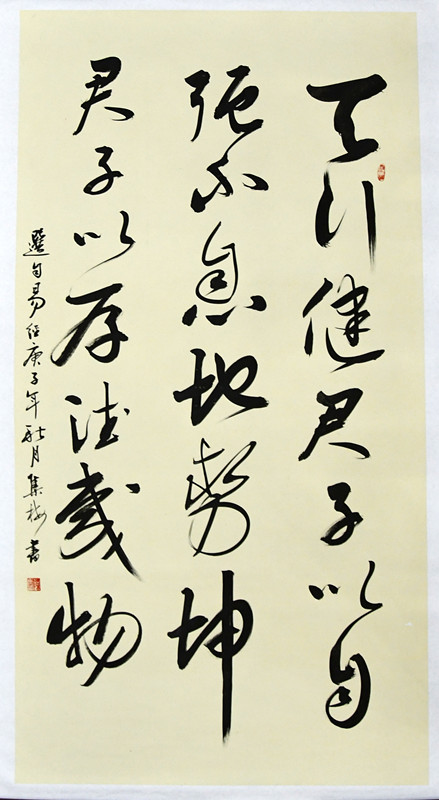 天行健君子以自
强不息地勢坤
君子以厚德載物
選自易經庚子年秋月集梅書